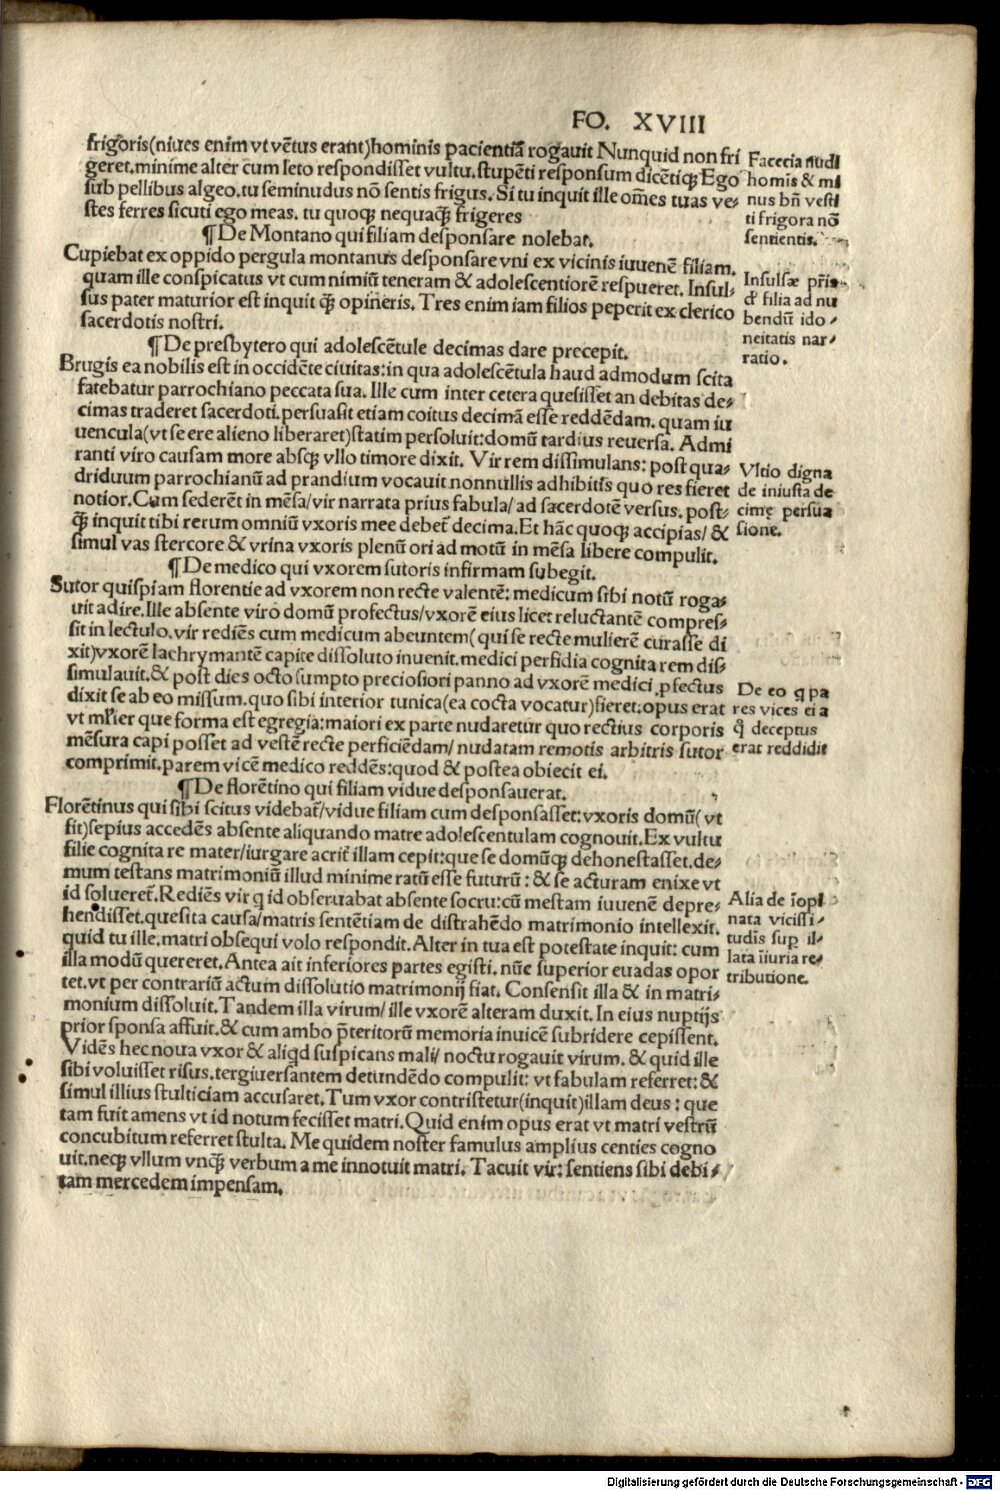 FO. XVIII
frigoris(niues enim vt vẽtus erant)hominis pacientiã rogauit Nunquid non fri
geret.minime alter cum leto respondisset vultu.stupẽti responsum dicẽtiqꝫ Ego
sub pellibus algeo.tu seminudus nõ sentis frigus. Si tu inquit ille om̃es tuas ve⸗
stes ferres sicuti ego meas. tu quoqꝫ nequaqꝫ̃ frigeres
¶De Montano qui filiam desponsare nolebat.
Cupiebat ex oppido pergula montanus desponsare vni ex vicinis iuuenẽ filiam.
quam ille conspicatus vt cum nimiũ teneram & adolescentiorẽ respueret. Insul⸗
sus pater maturior est inquit qꝫ̃ opineris. Tres enim iam filios peperit ex clerico
sacerdotis nostri.
¶De presbytero qui adolescẽtule decimas dare precepit.
Brugis ea nobilis est in occidẽte ciuitas:in qua adolescẽtula haud admodum scita
fatebatur parrochiano peccata sua. Ille cum inter cetera quesisset an debitas de⸗
cimas traderet sacerdoti.persuasit etiam coitus decimã esse reddẽdam. quam iu
uencula(vt se ere alieno liberaret)statim persoluit:domũ tardius reuersa. Admi
ranti viro causam more absqꝫ vllo timore dixit. Vir rem dissimulans: post qua⸗
driduum parrochianũ ad prandium vocauit nonnullis adhibitis quo res fieret
notior.Cum sederẽt in mẽsa/vir narrata prius fabula/ad sacerdotẽ versus. post⸗
qꝫ̃ inquit tibi rerum omniũ vxoris mee debet̃ decima.Et hãc quoqꝫ accipias/&
simul vas stercore & vrina vxoris plenũ ori ad motũ in mẽsa libere compulit.
¶De medico qui vxorem sutoris infirmam subegit.
Sutor quispiam florentie ad vxorem non recte valentẽ: medicum sibi notũ roga⸗
uit adire.Ille absente viro domũ profectus/vxorẽ eius licet reluctantẽ compres⸗
sit in lectulo.vir rediẽs cum medicum abeuntem(qui se recte mulierẽ curasse di
xit)vxorẽ lachrymantẽ capite dissoluto inuenit.medici perfidia cognita rem dis⸗
simulauit.& post dies octo sumpto preciosiori panno ad vxorẽ medici ꝓfectus
dixit se ab eo missum.quo sibi interior tunica(ea cocta vocatur)fieret:opus erat
vt ml̃ier que forma est egregia:maiori ex parte nudaretur quo rectius corporis
mẽsura capi posset ad vestẽ recte perficiẽdam/nudatam remotis arbitris sutor
comprimit.parem vicẽ medico reddẽs:quod & postea obiecit ei.
¶De florẽtino qui filiam vidue desponsauerat.
Florẽtinus qui sibi scitus videbat̃/vidue filiam cum desponsasset:vxoris domũ(vt
fit)sepius accedẽs absente aliquando matre adolescentulam cognouit.Ex vultu
filie cognita re mater/iurgare acrit̃ illam cepit:que se domũqꝫ dehonestasset.de⸗
mum testans matrimoniũ illud minime ratũ esse futurũ: & se acturam enixe vt
id solueret̃.Rediẽs vir q id obseruabat absente socru:cũ mestam iuuenẽ depre⸗
hendisset.quesita causa/matris sentẽtiam de distrahẽdo matrimonio intellexit.
quid tu ille.matri obsequi volo respondit.Alter in tua est potestate inquit: cum
illa modũ quereret.Antea ait inferiores partes egisti.nũc superior euadas opor
tet.vt per contrariũ actum dissolutio matrimonij fiat. Consensit illa & in matri⸗
monium dissoluit.Tandem illa virum/ille vxorẽ alteram duxit. In eius nuptijs
prior sponsa affuit.& cum ambo p̃teritorũ memoria inuicẽ subridere cepissent.
Vidẽs hec noua vxor & aliqd suspicans mali/ noctu rogauit virum. & quid ille
sibi voluisset risus.tergiuersantem detundẽdo compulit: vt fabulam referret:&
simul illius stulticiam accusaret.Tum vxor contristetur(inquit)illam deus: que
tam fuit amens vt id notum fecisset matri.Quid enim opus erat vt matri vestrũ
concubitum referret stulta. Me quidem noster famulus amplius centies cogno
uit.neqꝫ vllum vnqꝫ̃ verbum a me innotuit matri. Tacuit vir: sentiens sibi debi⸗
tam mercedem impensam.
Facecia nudi
homĩs & mi
nus bñ vesti
ti frigora nõ
sentientis.
Insulsæ pr̃is
d̃ filia ad nu
bendũ ido⸗
neitatis nar⸗
ratio.
Vltio digna
de iniusta de
cime persua
sione.
De eo q pa
res vices ei a
q̃ deceptus
erat reddidit
Alia de ĩopi
nata vicissi⸗
tudĩs sup il⸗
lata ĩiuria re⸗
tributione.
Digitalisierung gefördert durch die Deutsche Forschungsgemeinschaft - DFG